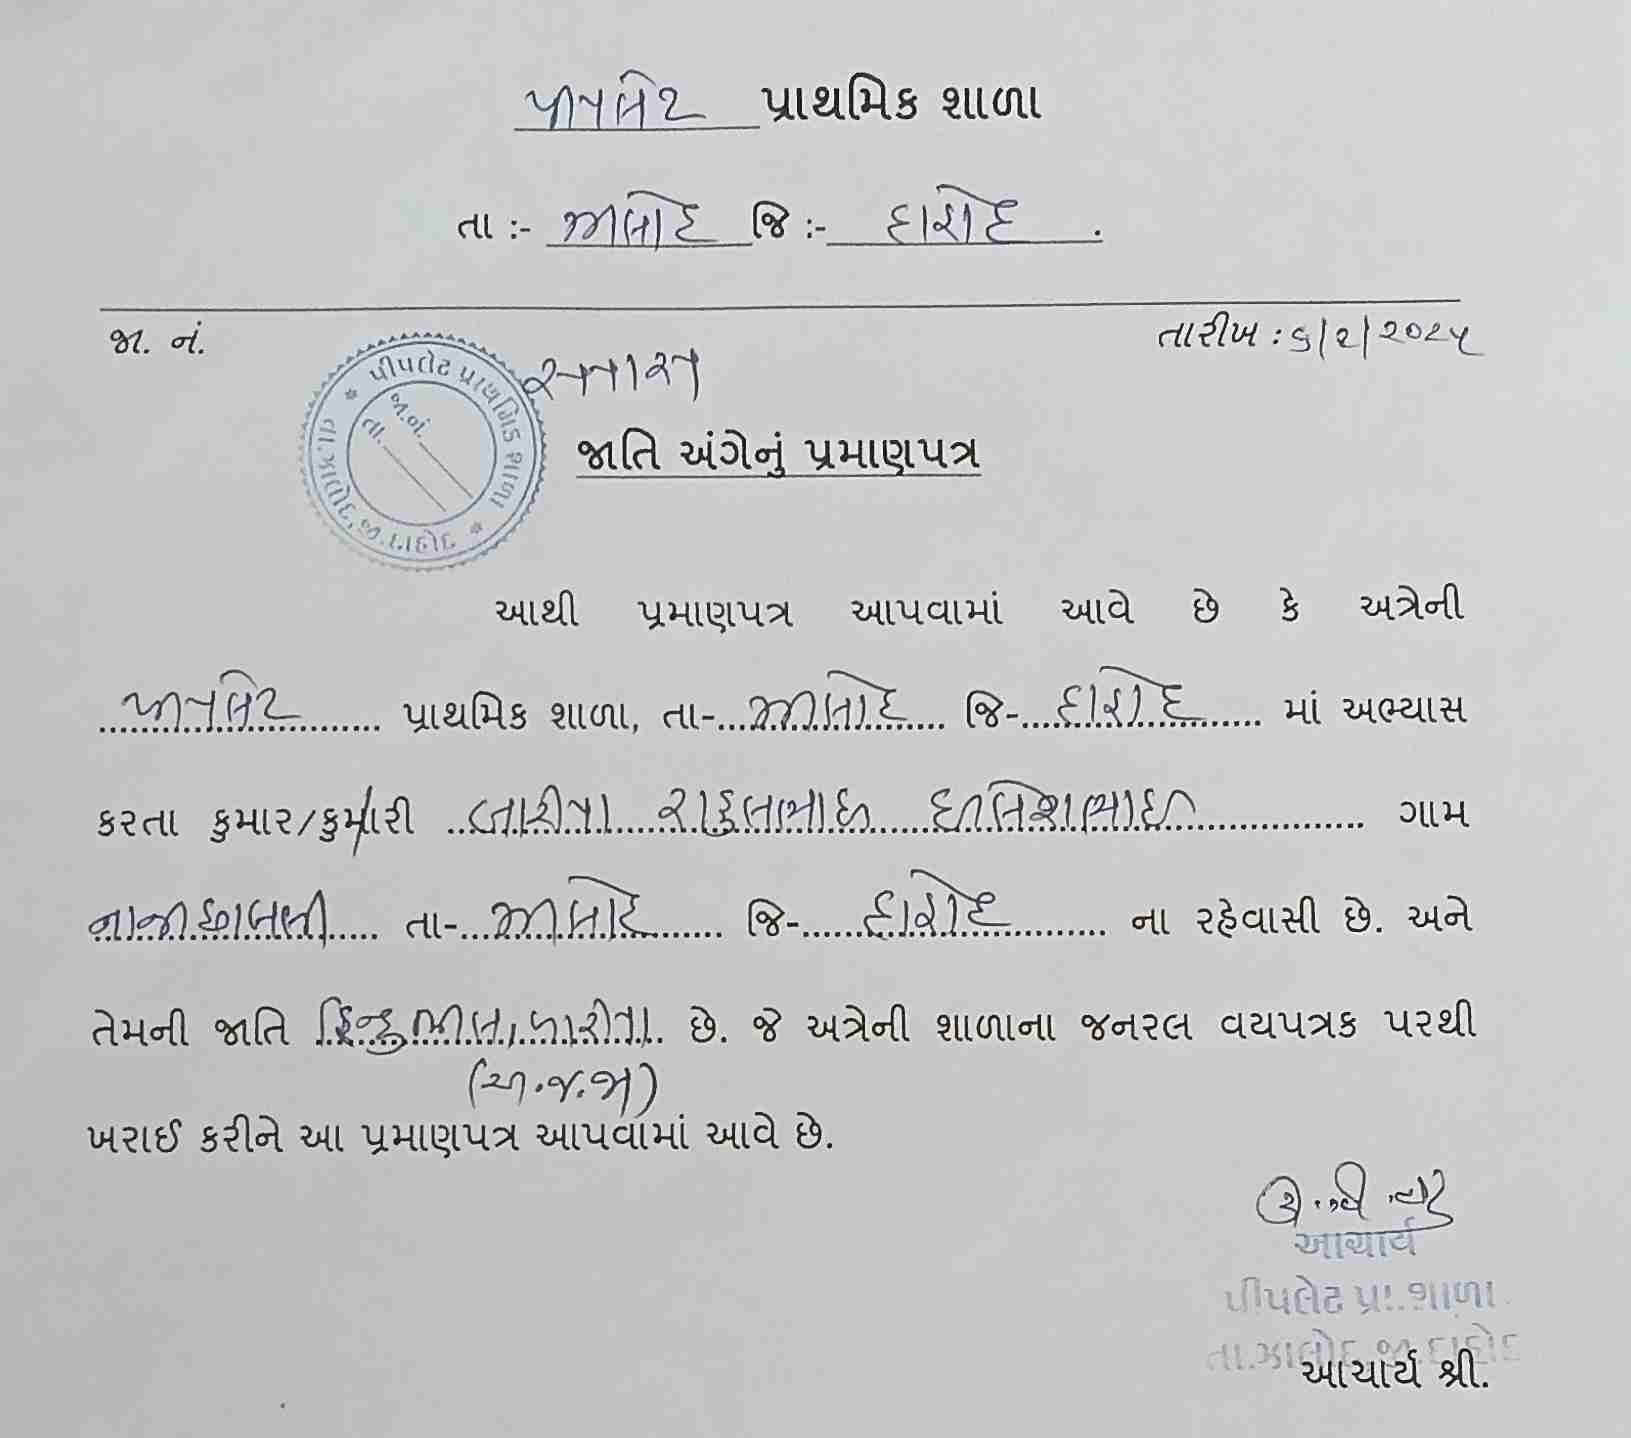 પીપલેટ પ્રાથમિક શાળા
તા :- ઝાલોદ જિ :- દાહોદ .
જા. નં.
તારીખ : ૬/૨/૨૦૨૫
પીપલેટ પ્રાથમિક શાળા
તા.ઝાલોદ, જી. દાહોદ
જા.નં.
તા.
જાતિ અંગેનું પ્રમાણપત્ર
આથી પ્રમાણપત્ર આપવામાં આવે છે કે અત્રેની
પીપલેટ પ્રાથમિક શાળા, તા-ઝાલોદ જિ-દાહોદ માં અભ્યાસ
કરતા કુમાર/કુમારી બારીયા રાહુલભાઇ ગામ
તા-ઝાલોદ જિ-દાહોદ ના રહેવાસી છે. અને
તેમની જાતિ હિન્દુ ભીલ, બારીયા છે. જે અત્રેની શાળાના જનરલ વયપત્રક પરથી
(અ.જ.જા)
ખરાઈ કરીને આ પ્રમાણપત્ર આપવામાં આવે છે.
આચાર્ય
પીપલેટ પ્રા.શાળા
તા.ઝાલોદ જી.દાહોદ
આચાર્ય શ્રી.